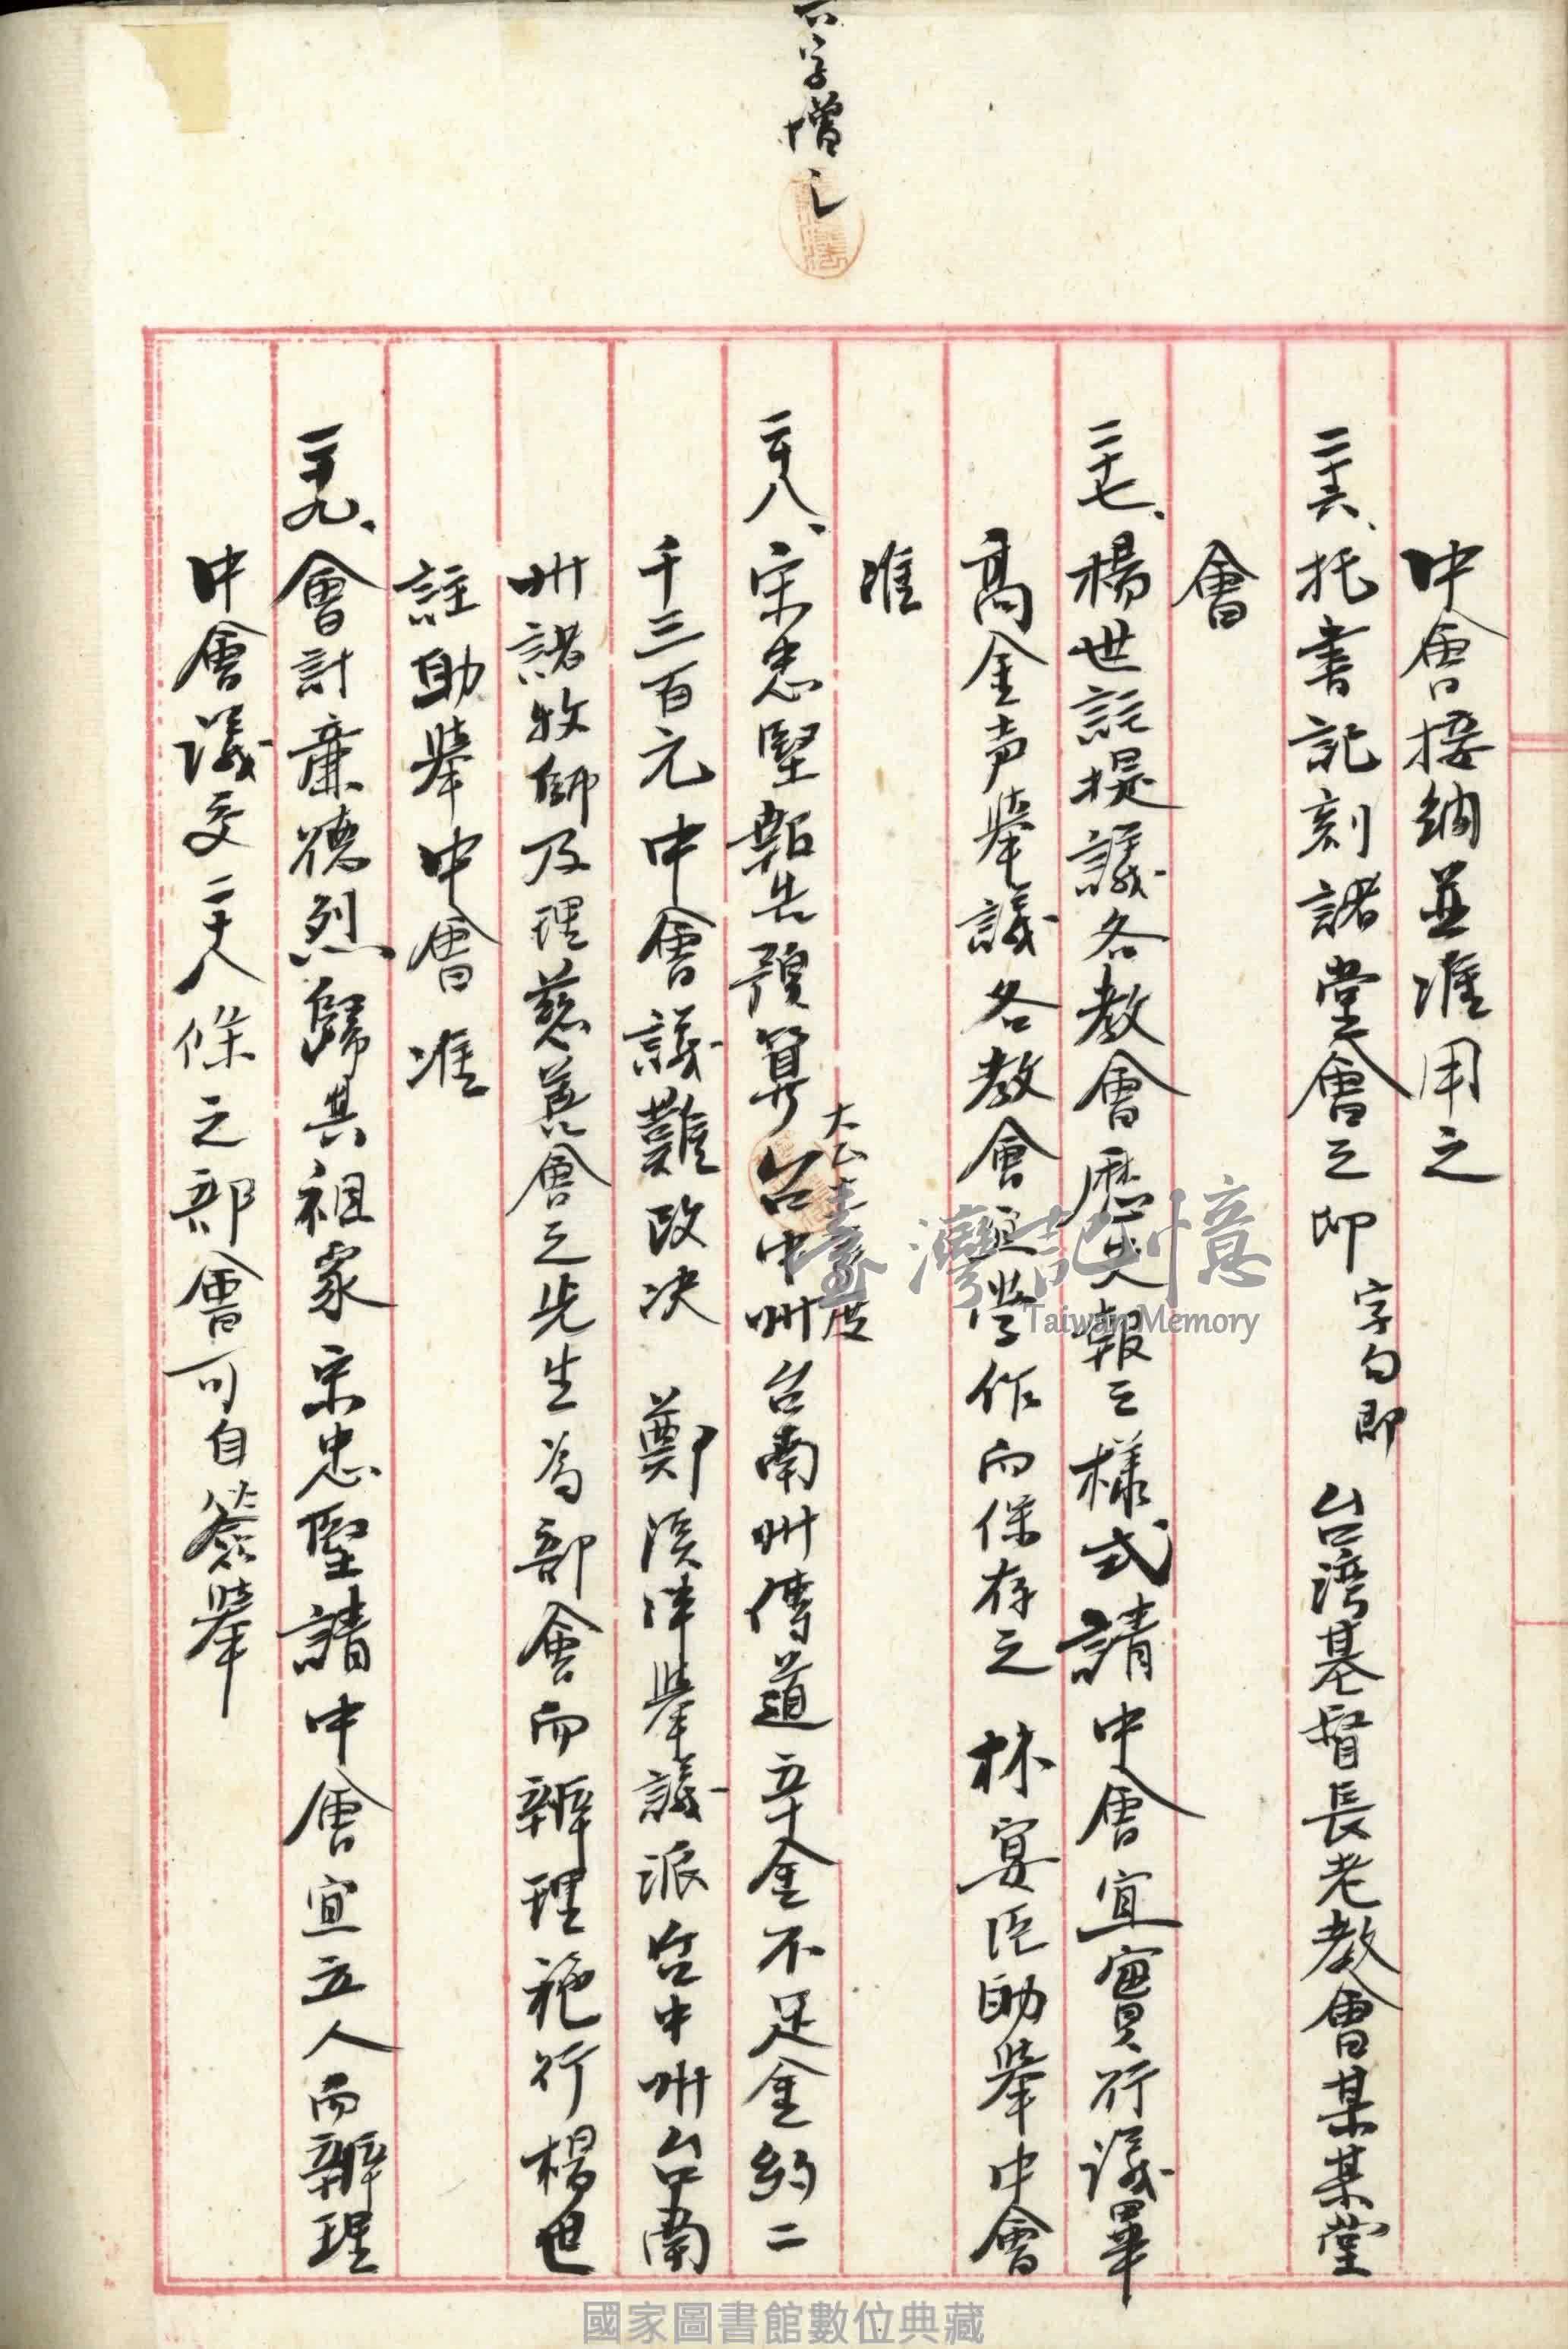 六字增之
中會接納並准用之
二十六、托書記刻諸堂會之印 字句即 台湾基督長老教會某某堂
會
二十七、楊世註提議各教會歷史報之樣式請中會宜實行議畢
高金声舉議各教會 作而保存之 林宴臣助舉中會
准
大正十 年度
二十八、宋忠堅報告預算台中州台南州傳道五十金不足金約二
千三百元中會議難政決 鄭溪泮舉議派台中州台南
州諸牧師及理慈善會之先生為部會而辦理施行楊世
註助舉中會准
二十九、會計廉德烈歸其祖家宋忠堅請中會宜立人而辦理
中會議交二十八條之部會可自簽舉
臺灣記憶
Taiwan Memory
國家圖書館數位典藏